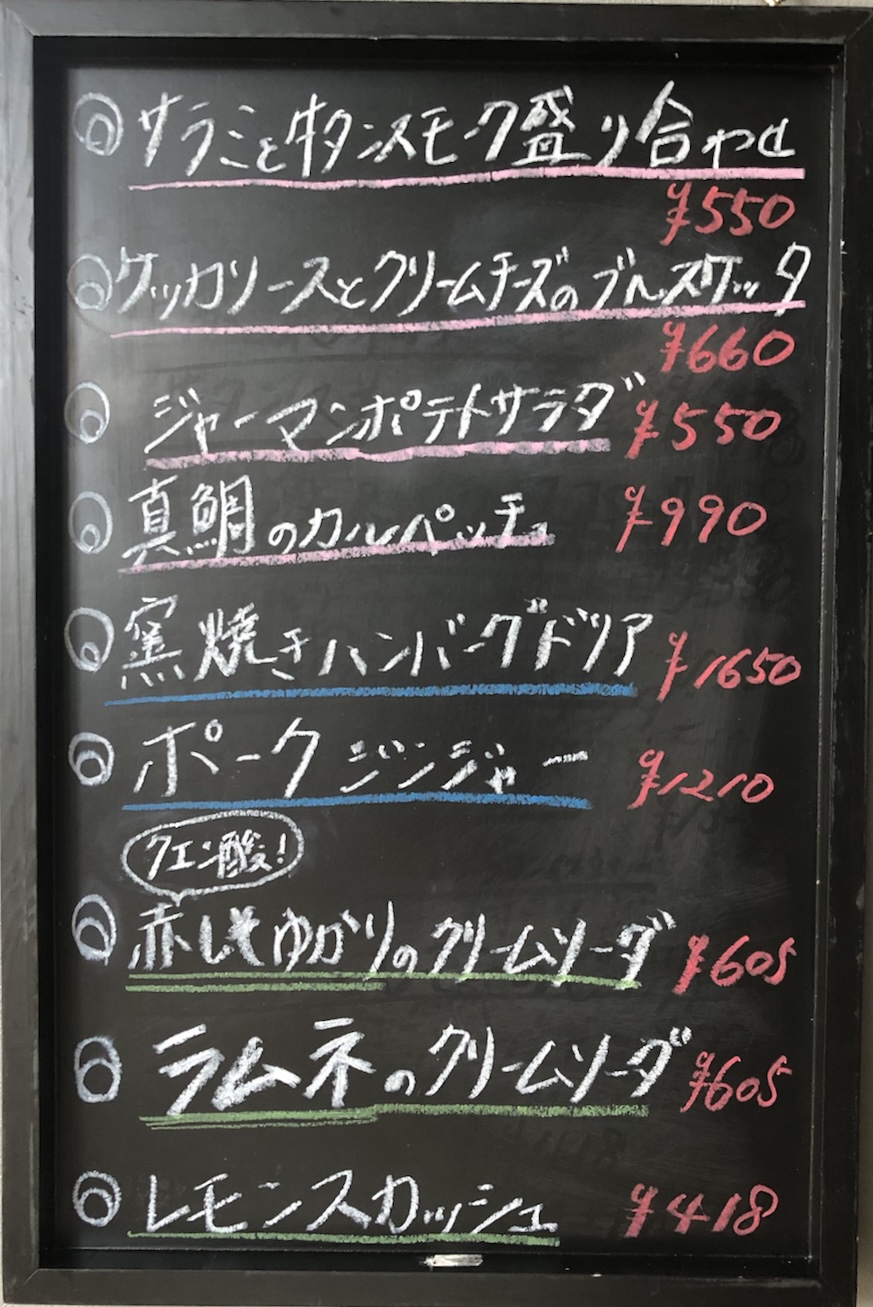 ◎ サラミと牛タンスモーク盛り合わせ
¥550
◎ ケッカソースとクリームチーズのブルスケッタ
¥660
◎ ジャーマンポテトサラダ ¥550
◎ 真鯛のカルパッチョ ¥990
◎ 窯焼きハンバーグドリア ¥1650
◎ ポークジンジャー ¥1210
クエン酸!
◎ 赤しそゆかりのクリームソーダ ¥605
◎ ラムネのクリームソーダ ¥605
◎ レモンスカッシュ ¥418